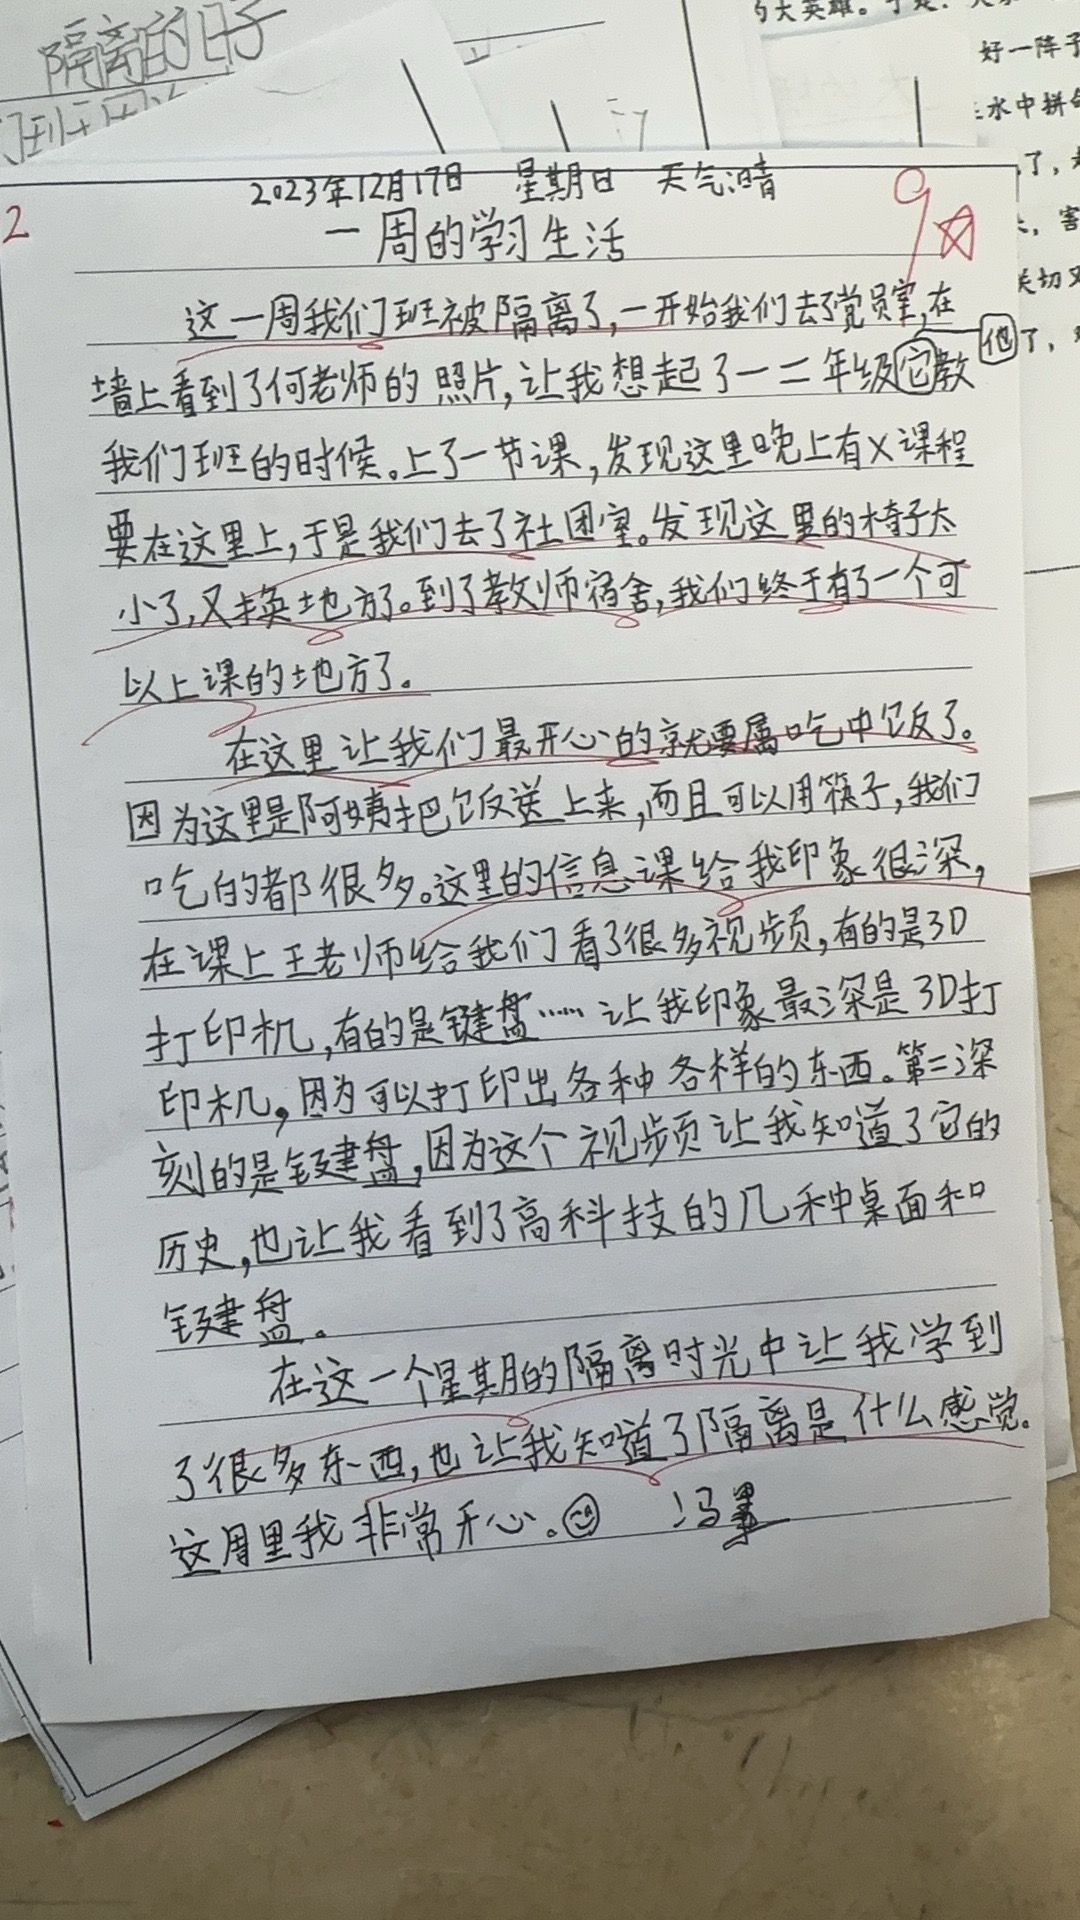 隔离的日子
的大英雄。于是,大家
好一阵子
水中拼命
了,
害
关切又
了,
2
2023年12月17日 星期日 天气晴
9☆
一周的学习生活
这一周我们班被隔离了,一开始我们去了党员室,在
墙上看到了何老师的照片,让我想起了一二年级它教
他
我们班的时候。上了一节课,发现这里晚上有X课程
要在这里上,于是我们去了社团室。发现这里的椅子太
小了,又换地方了。到了教师宿舍,我们终于有了一个可
以上课的地方了。
在这里让我们最开心的就要属吃中饭了。
因为这里是阿姨把饭送上来,而且可以用筷子,我们
吃的都很多。这里的信息课给我印象很深,
在课上王老师给我们看了很多视频,有的是3D
打印机,有的是键盘……让我印象最深是3D打
印机,因为可以打印出各种各样的东西。第二深
刻的是键盘,因为这个视频让我知道了它的
历史,也让我看到了高科技的几种桌面和
键盘。
在这一个星期的隔离时光中让我学到
了很多东西,也让我知道了隔离是什么感觉。
这周里我非常开心。☺ 冯